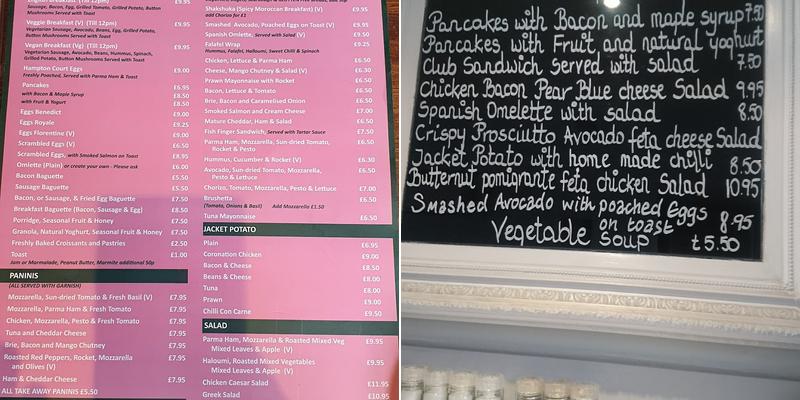 English Breakfast (Till 12pm) £9.95
Sausage, Bacon, Egg, Grilled Tomato, Grilled Potato, Button
Mushrooms Served with Toast
Veggie Breakfast (V) (Till 12pm) £9.95
Vegetarian Sausage, Avocado, Beans, Egg, Grilled Potato,
Button Mushrooms Served with Toast
Vegan Breakfast (Vg) (Till 12pm) £9.95
Vegetarian Sausage, Avocado, Beans, Hummus, Spinach,
Grilled Potato, Button Mushrooms Served with Toast
Hampton Court Eggs £9.00
Freshly Poached, Served with Parma Ham & Toast
Pancakes £6.95
with Bacon & Maple Syrup £8.50
with Fruit & Yogurt £8.50
Eggs Benedict £9.00
Eggs Royale £9.25
Eggs Florentine (V) £9.00
Scrambled Eggs (V) £6.50
Scrambled Eggs, with Smoked Salmon on Toast £8.95
Omlette (Plain) or create your own - Please ask £6.00
Bacon Baguette £5.50
Sausage Baguette £5.50
Bacon, or Sausage, & Fried Egg Baguette £7.50
Breakfast Baguette (Bacon, Sausage & Egg) £8.50
Porridge, Seasonal Fruit & Honey £7.50
Granola, Natural Yoghurt, Seasonal Fruit & Honey £7.50
Freshly Baked Croissants and Pastries £2.50
Toast £1.00
Jam or Marmalade, Peanut Butter, Marmite additional 50p
PANINIS
(ALL SERVED WITH GARNISH)
Mozzarella, Sun-dried Tomato & Fresh Basil (V) £7.95
Mozzarella, Parma Ham & Fresh Tomato £7.95
Chicken, Mozzarella, Pesto & Fresh Tomato £7.95
Tuna and Cheddar Cheese £7.95
Brie, Bacon and Mango Chutney £7.95
Roasted Red Peppers, Rocket, Mozzarella £7.95
and Olives (V)
Ham & Cheddar Cheese £7.95
ALL TAKE AWAY PANINIS £5.50
Shakshuka (Spicy Moroccan Breakfast) (V) £9.95
add Chorizo for £1
Smashed Avocado, Poached Eggs on Toast (V) £9.95
Spanish Omlette, Served with Salad (V) £9.50
Falafel Wrap £9.25
Hummus, Falafel, Halloumi, Sweet Chilli & Spinach
Chicken, Lettuce & Parma Ham £6.50
Cheese, Mango Chutney & Salad (V) £6.30
Prawn Mayonnaise with Rocket £6.50
Bacon, Lettuce & Tomato £6.50
Brie, Bacon and Caramelised Onion £6.50
Smoked Salmon and Cream Cheese £7.00
Mature Cheddar, Ham & Salad £6.50
Fish Finger Sandwich, Served with Tartar Sauce £7.50
Parma Ham, Mozzarella, Sun-dried Tomato, £6.50
Rocket & Pesto
Hummus, Cucumber & Rocket (V) £6.30
Avocado, Sun-dried Tomato, Mozzarella, £6.50
Pesto & Lettuce
Chorizo, Tomato, Mozzarella, Pesto & Lettuce £7.00
Brushetta £6.50
(Tomato, Onions & Basil) Add Mozzarella £1.50
Tuna Mayonnaise £6.50
JACKET POTATO
Plain £6.95
Coronation Chicken £9.00
Bacon & Cheese £8.50
Beans & Cheese £8.00
Tuna £8.00
Prawn £9.00
Chilli Con Carne £9.50
SALAD
Parma Ham, Mozzarella & Roasted Mixed Veg £9.95
Mixed Leaves & Apple (V)
Haloumi, Roasted Mixed Vegetables £9.95
Mixed Leaves & Apple (V)
Chicken Caesar Salad £11.95
Greek Salad £10.95
Pancakes with Bacon and maple syrup 7.50
Pancakes, with Fruit and natural yoghurt
Club Sandwich Served with salad 7.50
Chicken Bacon Pear Blue cheese Salad 9.95
Spanish Omelette with salad 8.50
Crispy Prosciutto Avocado feta cheese Salad
Jacket Potato with home made chilli 8.50
Butternut pomigrante feta chicken Salad 10.95
Smashed Avocado with poached Eggs
on toast 8.95
Vegetable Soup £5.50